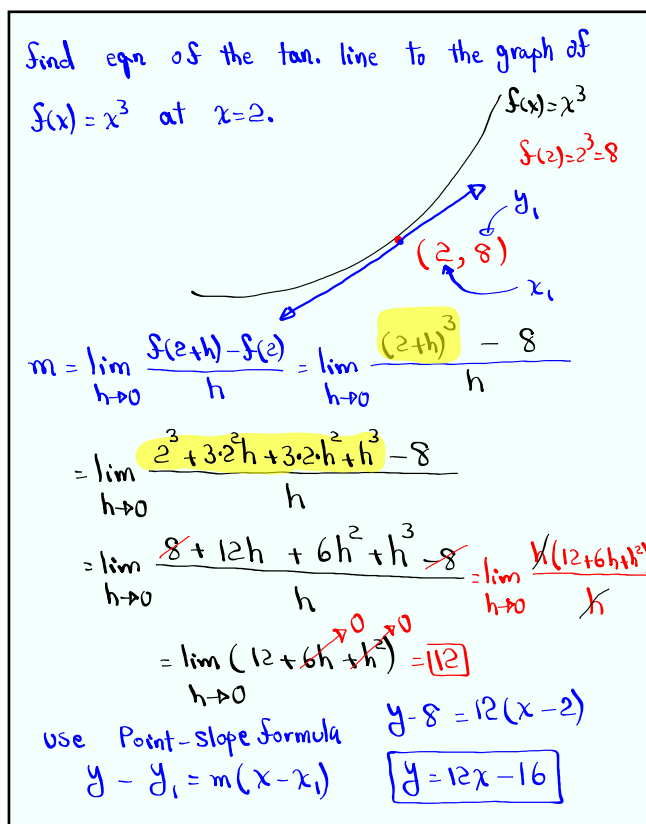 find eqn of the tan. line to the graph of
f(x) = x³ at x=2.
f(x)=x³
f(2)=2³=8
y₁
(2, 8)
x₁
m = lim h→0 (f(2+h) - f(2))/h = lim h→0 ((2+h)³ - 8)/h
= lim h→0 (2³ + 3·2²h + 3·2·h² + h³ - 8)/h
= lim h→0 (8 + 12h + 6h² + h³ - 8)/h = lim h→0 h(12+6h+h²)/h
= lim h→0 (12 + 6h + h²) = 12
0 0
use Point-slope formula
y-8 = 12(x-2)
y - y₁ = m(x-x₁)
y = 12x - 16